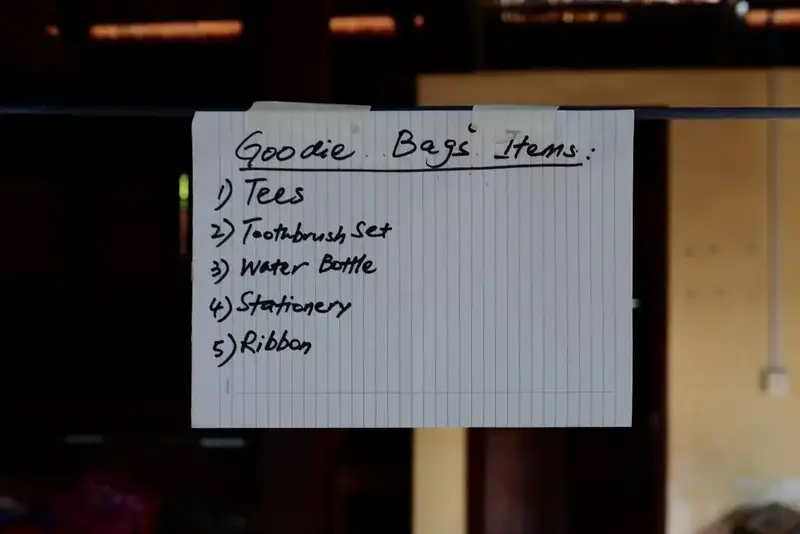 Goodie Bags' Items:
1) Tees
2) Toothbrush Set
3) Water Bottle
4) Stationery
5) Ribbon